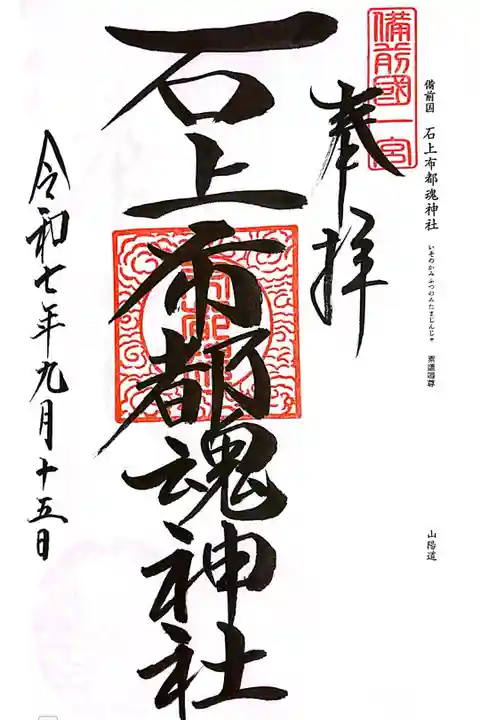 備前国 石上布都魂神社 いそのかみふつのみたまじんじゃ 素盞嗚尊 山陽道
備前國一宮
奉拝
石上布都魂神社
令和七年九月十五日